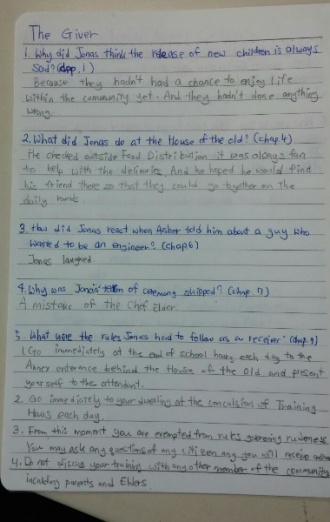 The Giver
1. Why did Jonas think the release of new children is always
sad? (chap. 1)
Because they hadn't had a chance to enjoy life
within the community yet. And they hadn't done anything
wrong.
2. What did Jonas do at the House of the old? (chap.4)
He checked outside Food Distribution it was always fun
to help with the deliveries. And he hoped he would find
his friend there so that they could go together on the
daily
3. How did Jonas react when Asher told him about a guy who
wanted to be an engineer? (chap6)
Jonas laughed
4. Why was Jonas' of ceremony skipped? (chap. 7)
A mistake of the Chef Elder
5. What were the rules Jonas had to follow as a receiver? (chap.9)
1. Go immediately at the end of school hours each day to the
Annex enterence behind the House of the Old and present
yourself to the attendant.
2. Go immediately to your dwelling at the conculsion of Training
Hours each day.
3. From this moment you are exempted from rules governing rudeness
You may ask any questions of any citizen any you will receive
4. Do not discuss your training with any other member of the community
including parents and Elders